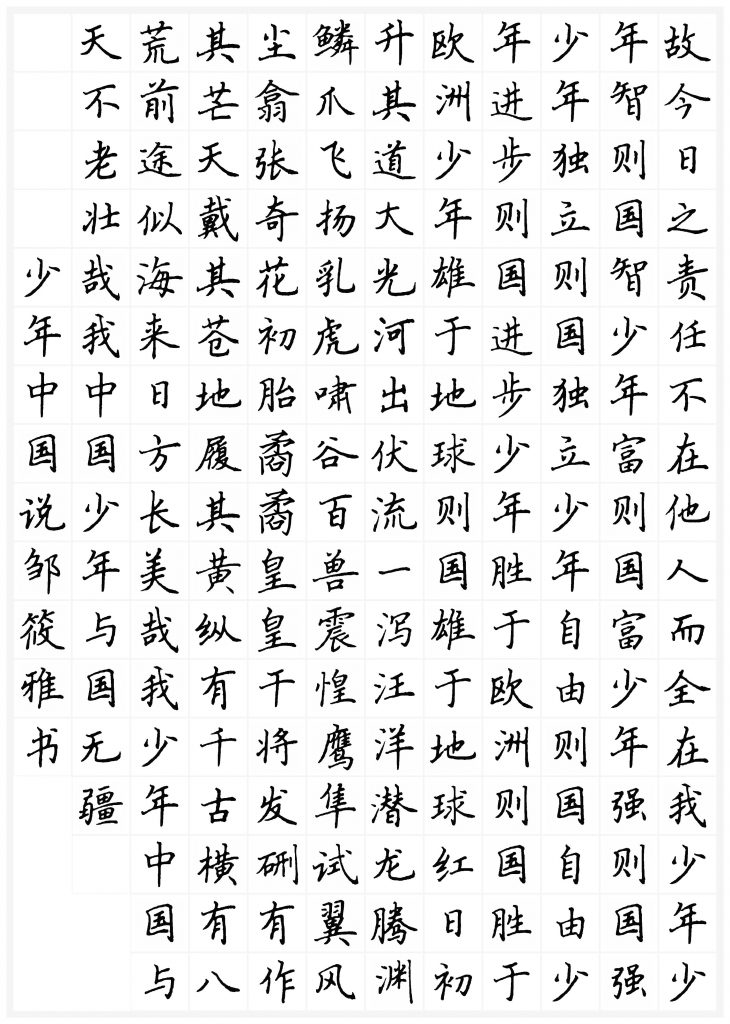 故今日之责任不在他人而全在我少年少
年智则国智少年富则国富少年强则国强
少年独立则国独立少年自由则国自由少
年进步则国进步少年胜于欧洲则国胜于
欧洲少年雄于地球则国雄于地球红日初
升其道大光河出伏流一泻汪洋潜龙腾渊
鳞爪飞扬乳虎啸谷百兽震惶鹰隼试翼风
尘翕张奇花初胎矞矞皇皇干将发硎有作
其芒天戴其苍地履其黄纵有千古横有八
荒前途似海来日方长美哉我少年中国与
天不老壮哉我中国少年与国无疆
少年中国说邹筱雅书